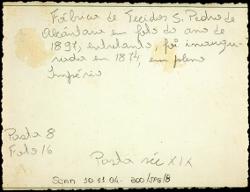 Fábrica de Tecidos S. Pedro de
Alcântara em foto do ano de
1891, entretanto, foi inaugu-
rada em 1874, em pleno
Império
Pasta 8
Foto 16
Pasta séc XIX
10.11.04-